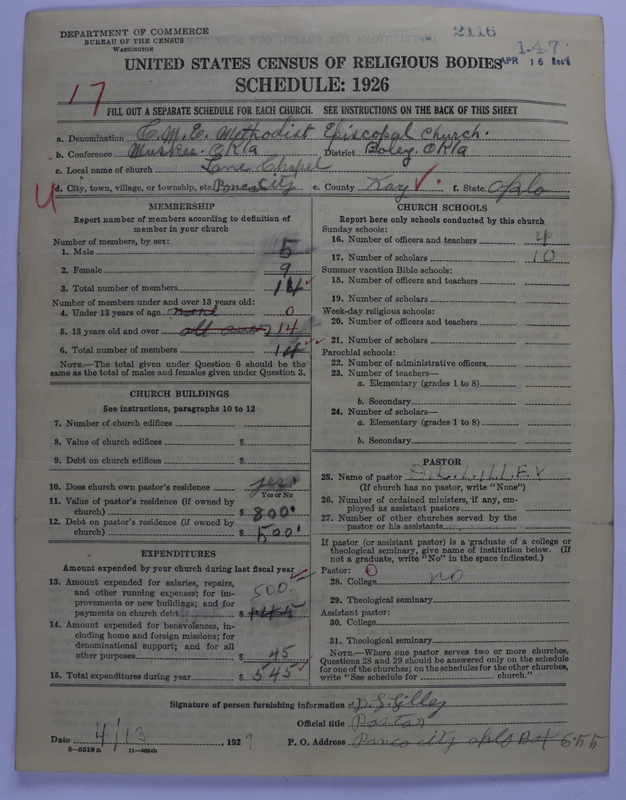 DEPARTMENT OF COMMERCE
BUREAU OF THE CENSUS
WASHINGTON
2116
1-4-7
APR 16
UNITED STATES CENSUS OF RELIGIOUS BODIES
SCHEDULE: 1926
17
FILL OUT A SEPARATE SCHEDULE FOR EACH CHURCH. SEE INSTRUCTIONS ON THE BACK OF THIS SHEET
a. Denomination C. M. E. Methodist Episcopal church.
b. Conference Muskee. OKla District Boley. OKla
c. Local name of church Lane Chapel
d. City, town, village, or township, etc. Ponca City e. County Kay ✓. f. State. Okla
MEMBERSHIP
Report number of members according to definition of
member in your church
Number of members, by sex:
1. Male 5
2. Female 9
3. Total number of members 14 ✓
Number of members under and over 13 years old:
4. Under 13 years of age none 0
5. 13 years old and over all over 14
6. Total number of members 14 ✓
NOTE.—The total given under Question 6 should be the
same as the total of males and females given under Question 3.
CHURCH BUILDINGS
See instructions, paragraphs 10 to 12
7. Number of church edifices
8. Value of church edifices $
9. Debt on church edifices $
10. Does church own pastor's residence yes
Yes or No
11. Value of pastor's residence (if owned by
church) $ 800
12. Debt on pastor's residence (if owned by
church) $ 500
EXPENDITURES
Amount expended by your church during last fiscal year
13. Amount expended for salaries, repairs,
and other running expenses; for im-
provements or new buildings; and for
payments on church debt 500 $
14. Amount expended for benevolences, in-
cluding home and foreign missions; for
denominational support; and for all
other purposes $ 45
15. Total expenditures during year $ 545 ✓
CHURCH SCHOOLS
Report here only schools conducted by this church
Sunday schools:
16. Number of officers and teachers 4
17. Number of scholars 10
Summer vacation Bible schools:
18. Number of officers and teachers
19. Number of scholars
Week-day religious schools:
20. Number of officers and teachers
21. Number of scholars
Parochial schools:
22. Number of administrative officers
23. Number of teachers—
a. Elementary (grades 1 to 8)
b. Secondary
24. Number of scholars—
a. Elementary (grades 1 to 8)
b. Secondary
PASTOR
25. Name of pastor
(If church has no pastor, write "None")
26. Number of ordained ministers, if any, em-
ployed as assistant pastors
27. Number of other churches served by the
pastor or his assistants
If pastor (or assistant pastor) is a graduate of a college or
theological seminary, give name of institution below. (If
not a graduate, write "No" in the space indicated.)
Pastor: 0
28. College no
29. Theological seminary
Assistant pastor:
30. College
31. Theological seminary
NOTE.—Where one pastor serves two or more churches,
Questions 28 and 29 should be answered only on the schedule
for one of the churches; on the schedules for the other churches,
write "See schedule for church."
Signature of person furnishing information
Official title Pastor
Date 4/13, 1927 P. O. Address Ponca city okla Box 655
8-5518a 11-9664b